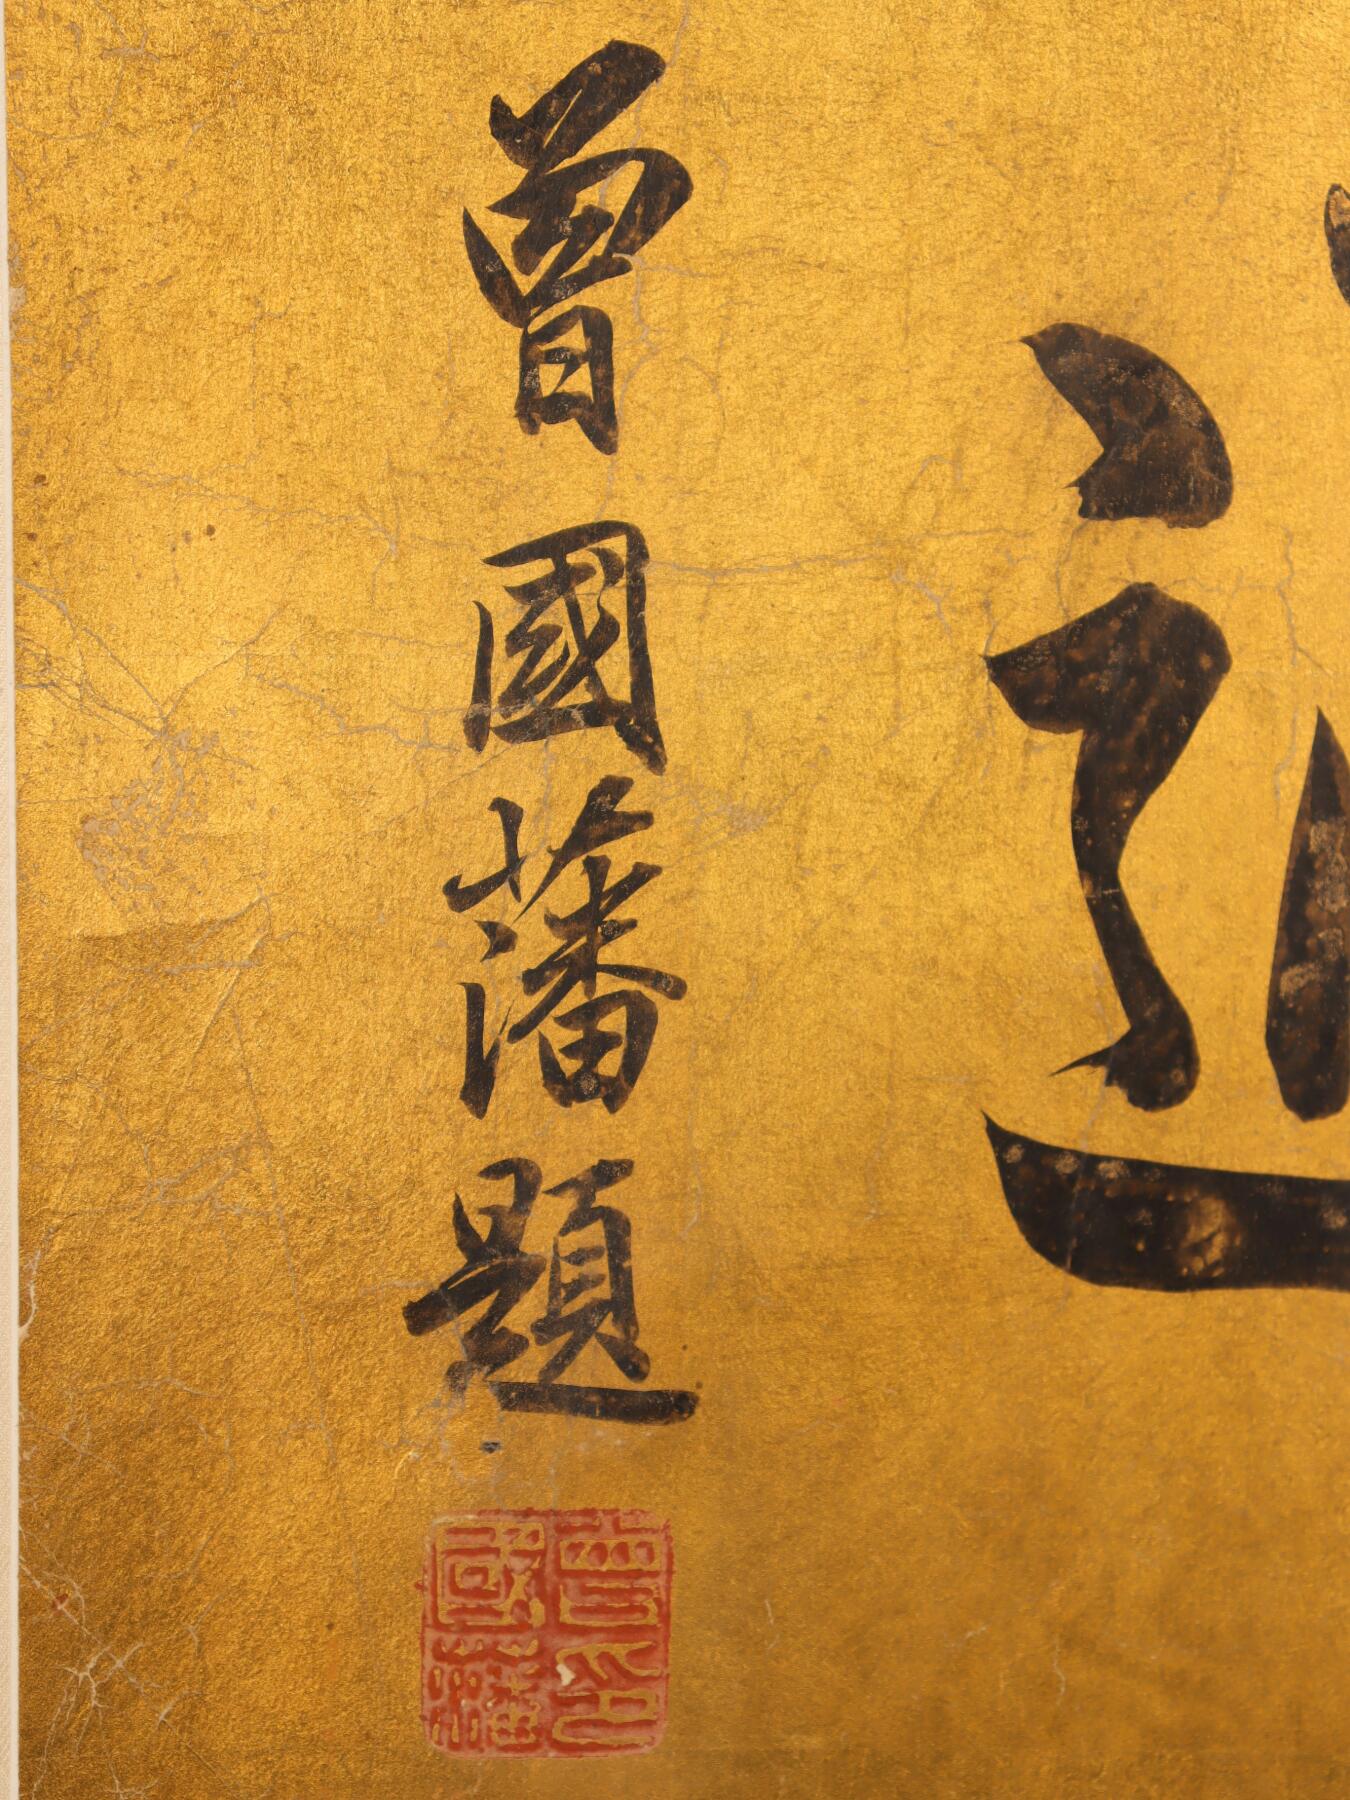 曾國藩題
曾印國藩